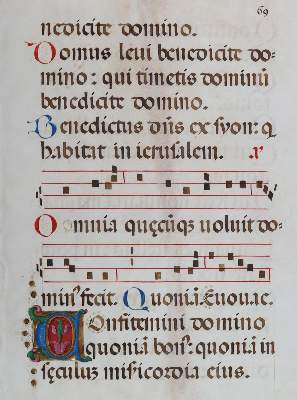 69
nedicite domino.
Domus leui benedicite do-
mino: qui timetis dominū
benedicite domino.
Benedictus dñs ex syon: q
habitat in ierusalem. v
Omnia quęcūqȝ uoluit do-
minꝰ fecit. Quoniā. Euouae.
Confitemini domino
quoniā bonꝰ: quoniā in
sęculuȝ misericordia eius.